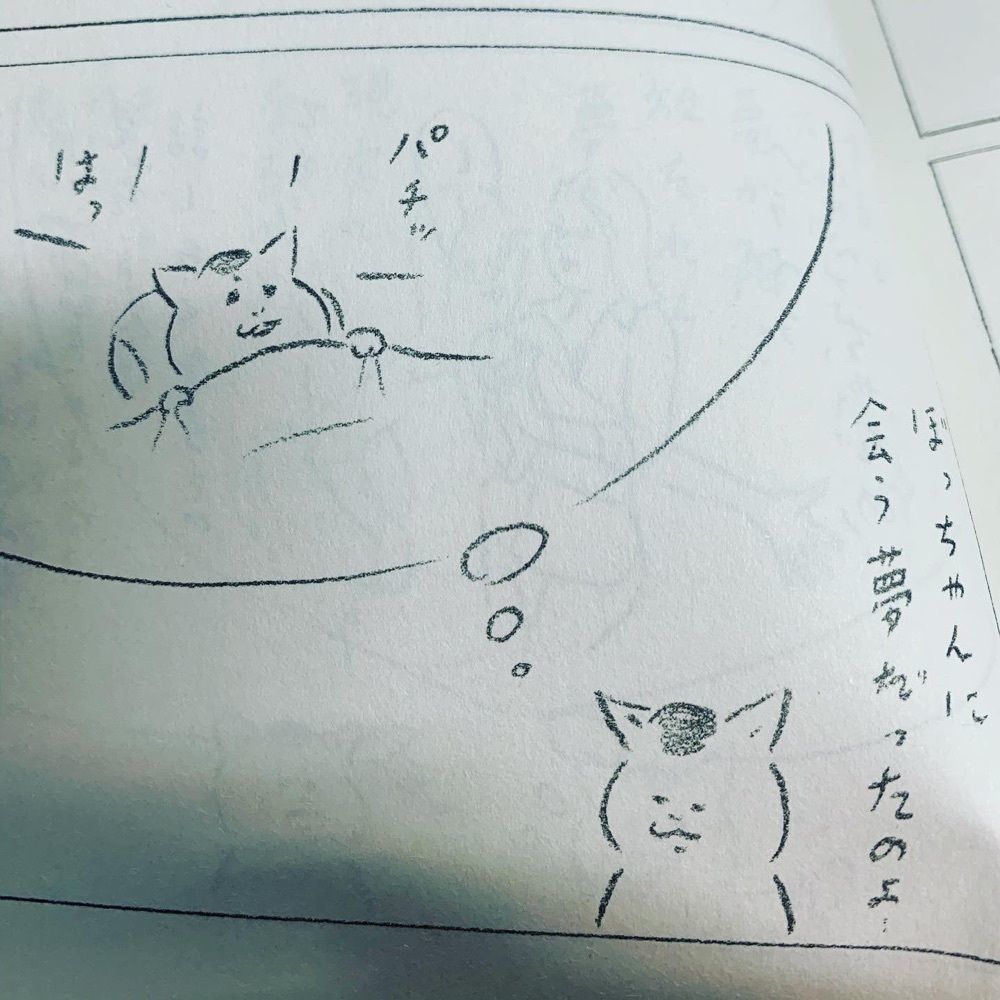 パチッ
はっ
ぼっちゃんに
会う夢だったのよ…